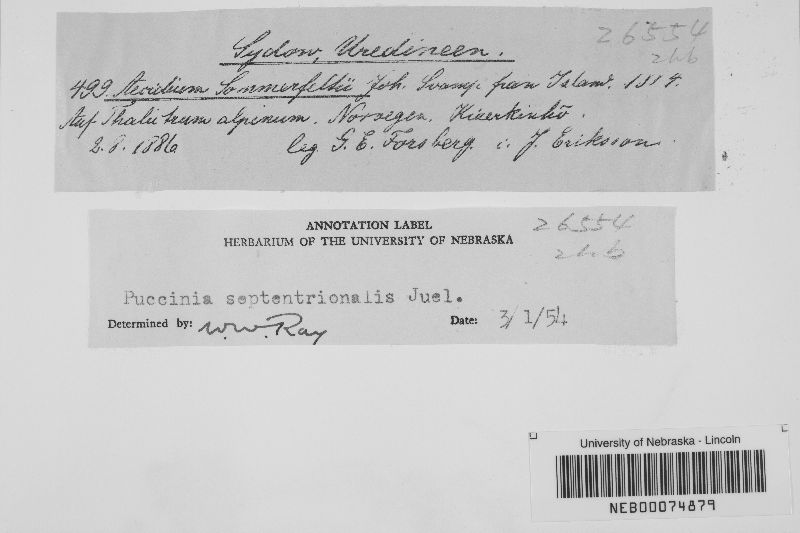 26554
Sydow, Uredineen.
499. Aecidium Sommerfeltii Joh. Svamp. fran Island. 1884.
Auf Thalictrum alpinum. Norvegen.
2.8.1886 leg. G. E. Forsberg. i. J. Eriksson.
ANNOTATION LABEL
HERBARIUM OF THE UNIVERSITY OF NEBRASKA
26554
Puccinia septentrionalis Juel.
Determined by: W.W. Ray Date: 3/1/54
University of Nebraska - Lincoln
NEB00074879